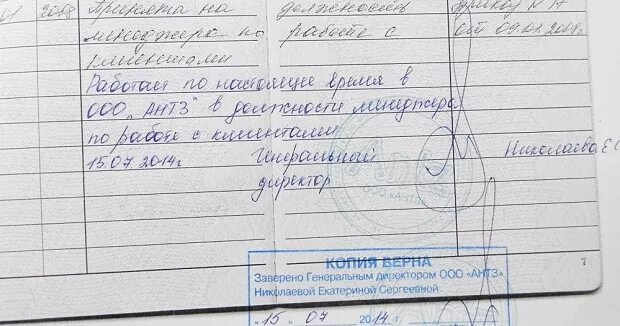 01 2008 Принята на должность Приказ N 17
менеджера по работе с от 09.01.2008
клиентами
Работает по настоящее время в
ООО "АНТЗ" в должности менеджера
по работе с клиентами
15.07.2014г Генеральный Николаева Е С
директор
ООО «АНТЗ»
КОПИЯ ВЕРНА
Заверено Генеральным директором ООО «АНТЗ»
Николаевой Екатериной Сергеевной
"15" 07 2014 г.
7